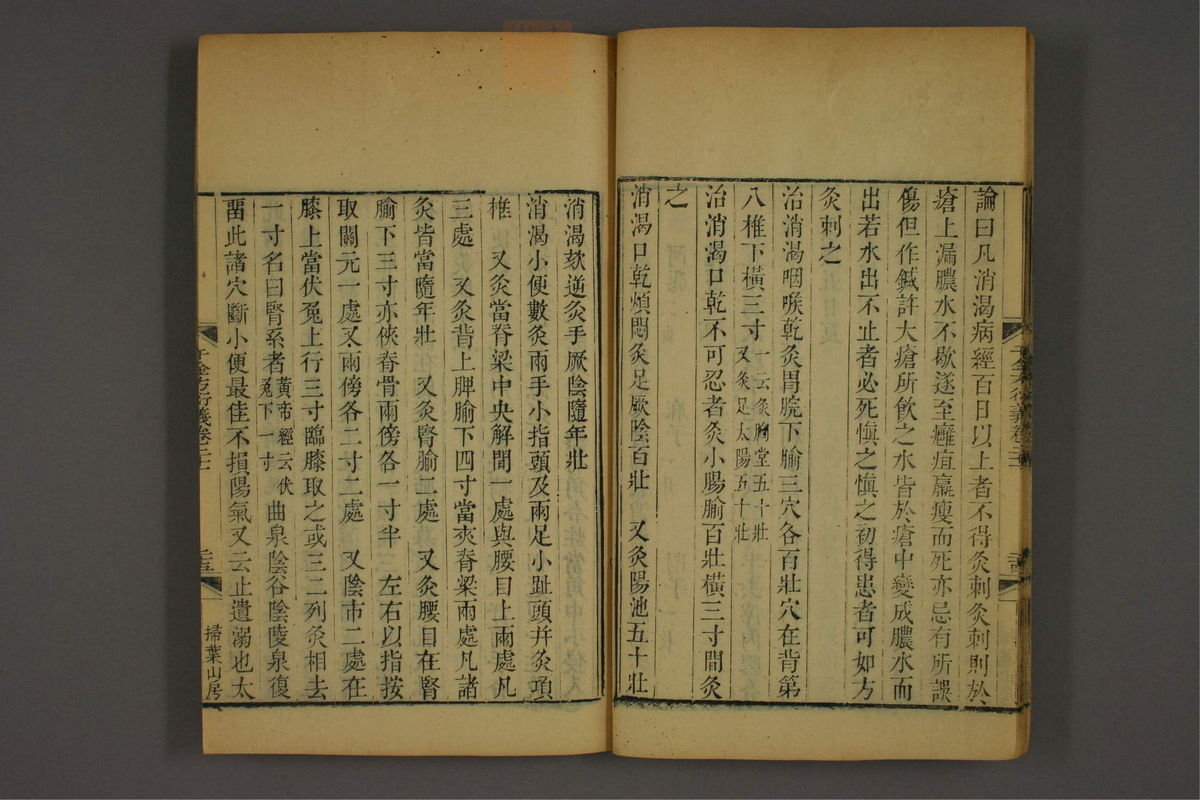 論曰凡消渴病經百日以上者不得灸刺灸刺則於
瘡上漏膿水不歇遂至癰疽羸瘦而死亦忌有所誤
傷但作鍼許大瘡所飲之水皆於瘡中變成膿水而
出若水出不止者必死慎之慎之初得患者可如方
灸刺之
治消渴咽喉乾灸胃脘下腧三穴各百壯穴在背第
八椎下橫三寸一云灸胸堂五十壯又灸足太陽五十壯
治消渴口乾不可忍者灸小腸腧百壯橫三寸間灸
之
消渴口乾煩悶灸足厥陰百壯 又灸陽池五十壯
消渴欬逆灸手厥陰隨年壯
消渴小便數灸兩手小指頭及兩足小趾頭并灸項
椎 又灸當脊梁中央解間一處與腰目上兩處凡
三處 又灸背上脾腧下四寸當夾脊梁兩處凡諸
灸皆當隨年壯 又灸腎腧二處 又灸腰目在腎
腧下三寸亦俠脊骨兩傍各一寸半 左右以指按
取關元一處又兩傍各二寸二處 又陰市二處在
膝上當伏兔上行三寸臨膝取之或三二列灸相去
一寸名曰腎系者黃帝經云伏兔下一寸曲泉陰谷陰陵泉復
畱此諸穴斷小便最佳不損陽氣又云止遺溺也太
千金方衍義卷二十一
掃葉山房